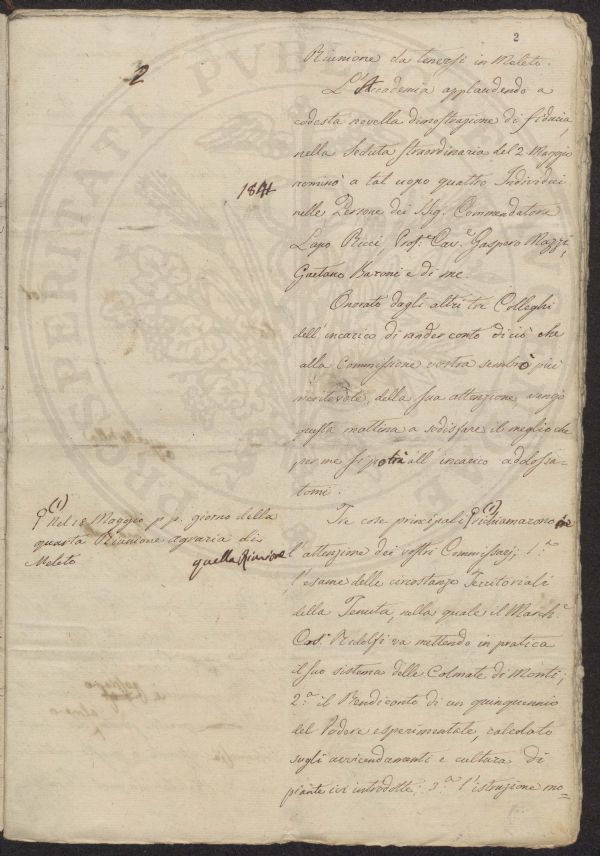 2
2
Riunione da tenersi in Meleto.
L'Accademia applaudendo a
codesta novella dimostrazione di fiducia,
nella Seduta straordinaria del 2 Maggio
1841
nominò a tal uopo quattro Individui
nelle Persone dei Sig. Commendatore
Lapo Ricci, Prof.e Cav.e Gaspero Mazzi,
Gaetano Baroni e di me.
Onorato dagli altri tre Colleghi
dell'incarico di render conto di ciò che
alla Commissione vostra sembrò più
meritevole della sua attenzione vengo
questa mattina a sodisfare il meglio che
per me si potrà all'incarico addossa-
tomi.
Tre cose principali (1) richiamarono
l'attenzione dei vostri Commissarj; 1.o
l'esame delle circostanze Territoriali
della Tenuta, nella quale il March.e
Cos.o Ridolfi va mettendo in pratica
il suo sistema delle Colmate di Monti;
2.o il Rendiconto di un quinquennio
del Podere esperimentale, calcolato
sugli avvicendamenti e cultura di
piante ivi introdotte; 3.o l'istruzione mo=
(1) Nel 18 Maggio p. p. giorno della
quarta Riunione agraria di
Meleto
quella Riunione